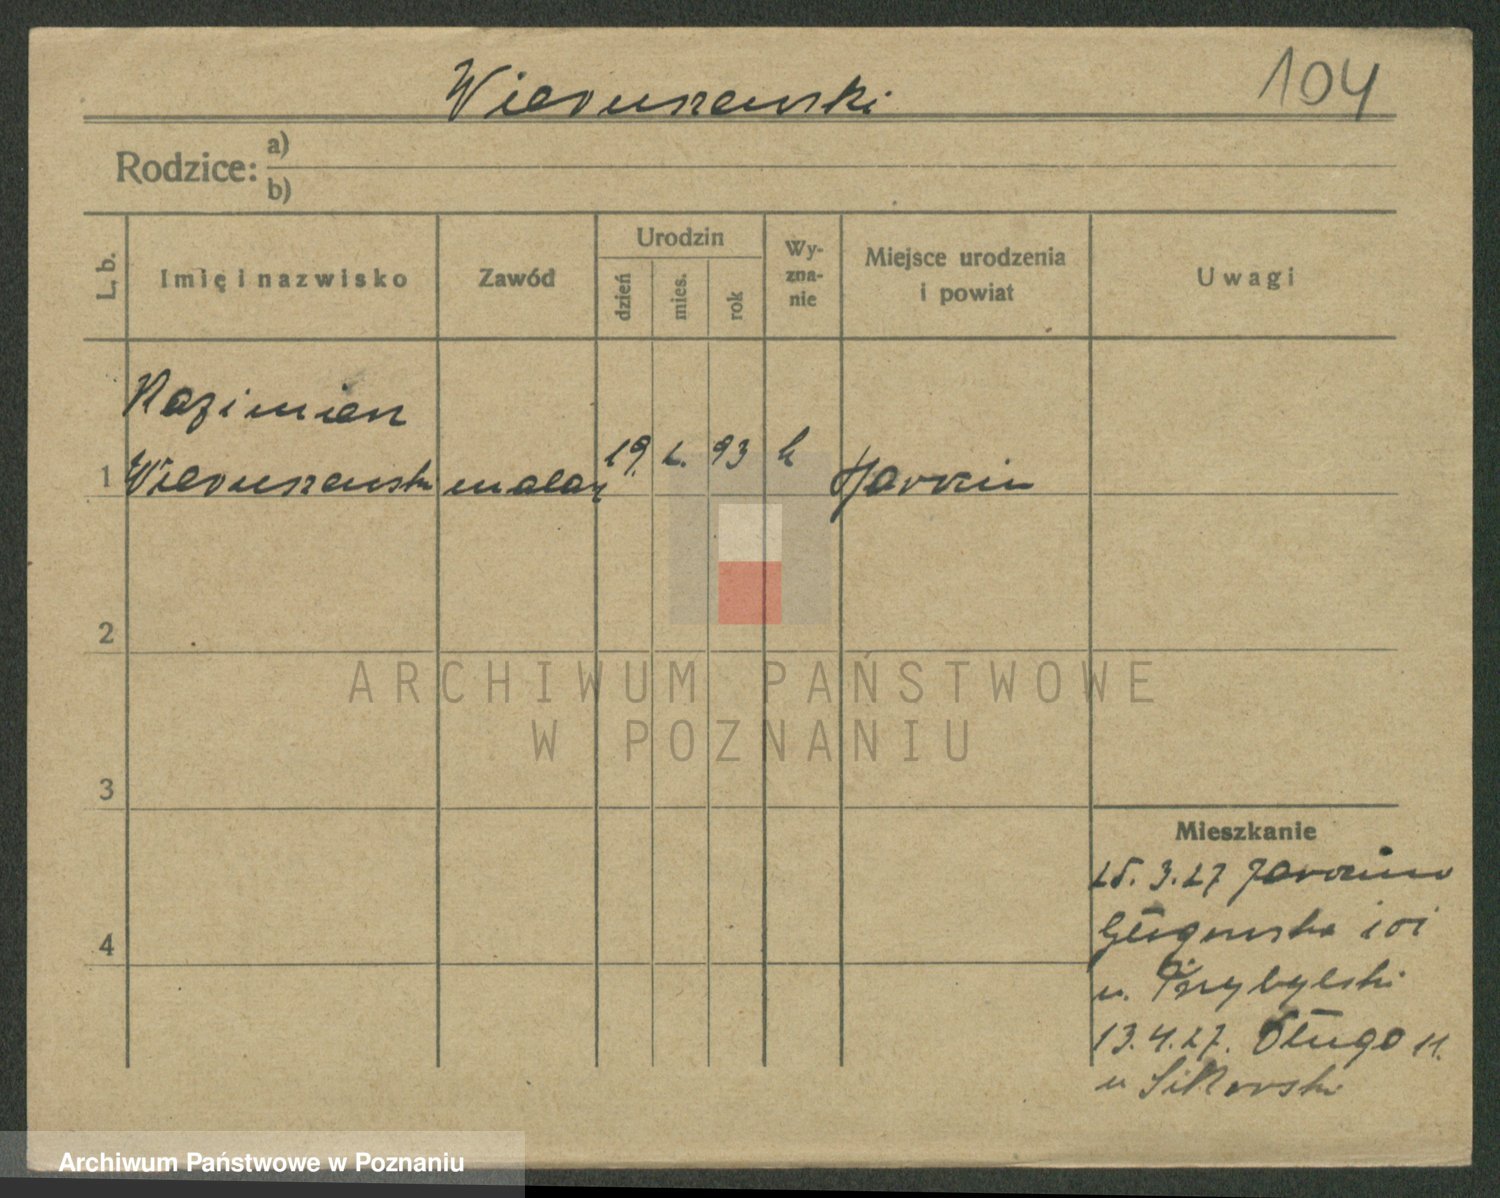 Wieruszewski
104
Rodzice: a)
b)
L. b.
Imię i nazwisko
Zawód
Urodzin
dzień
mies.
rok
Wy-
zna-
nie
Miejsce urodzenia
i powiat
Uwagi
Kazimierz
1 Wieruszewski malarz 19. 2. 93 k
2
3
4
Mieszkanie
25. 3. 27
101
u. Przybylski
13. 4. 27. Długa 11.
u Sikorski
ARCHIWUM PAŃSTWOWE
W POZNANIU
Archiwum Państwowe w Poznaniu